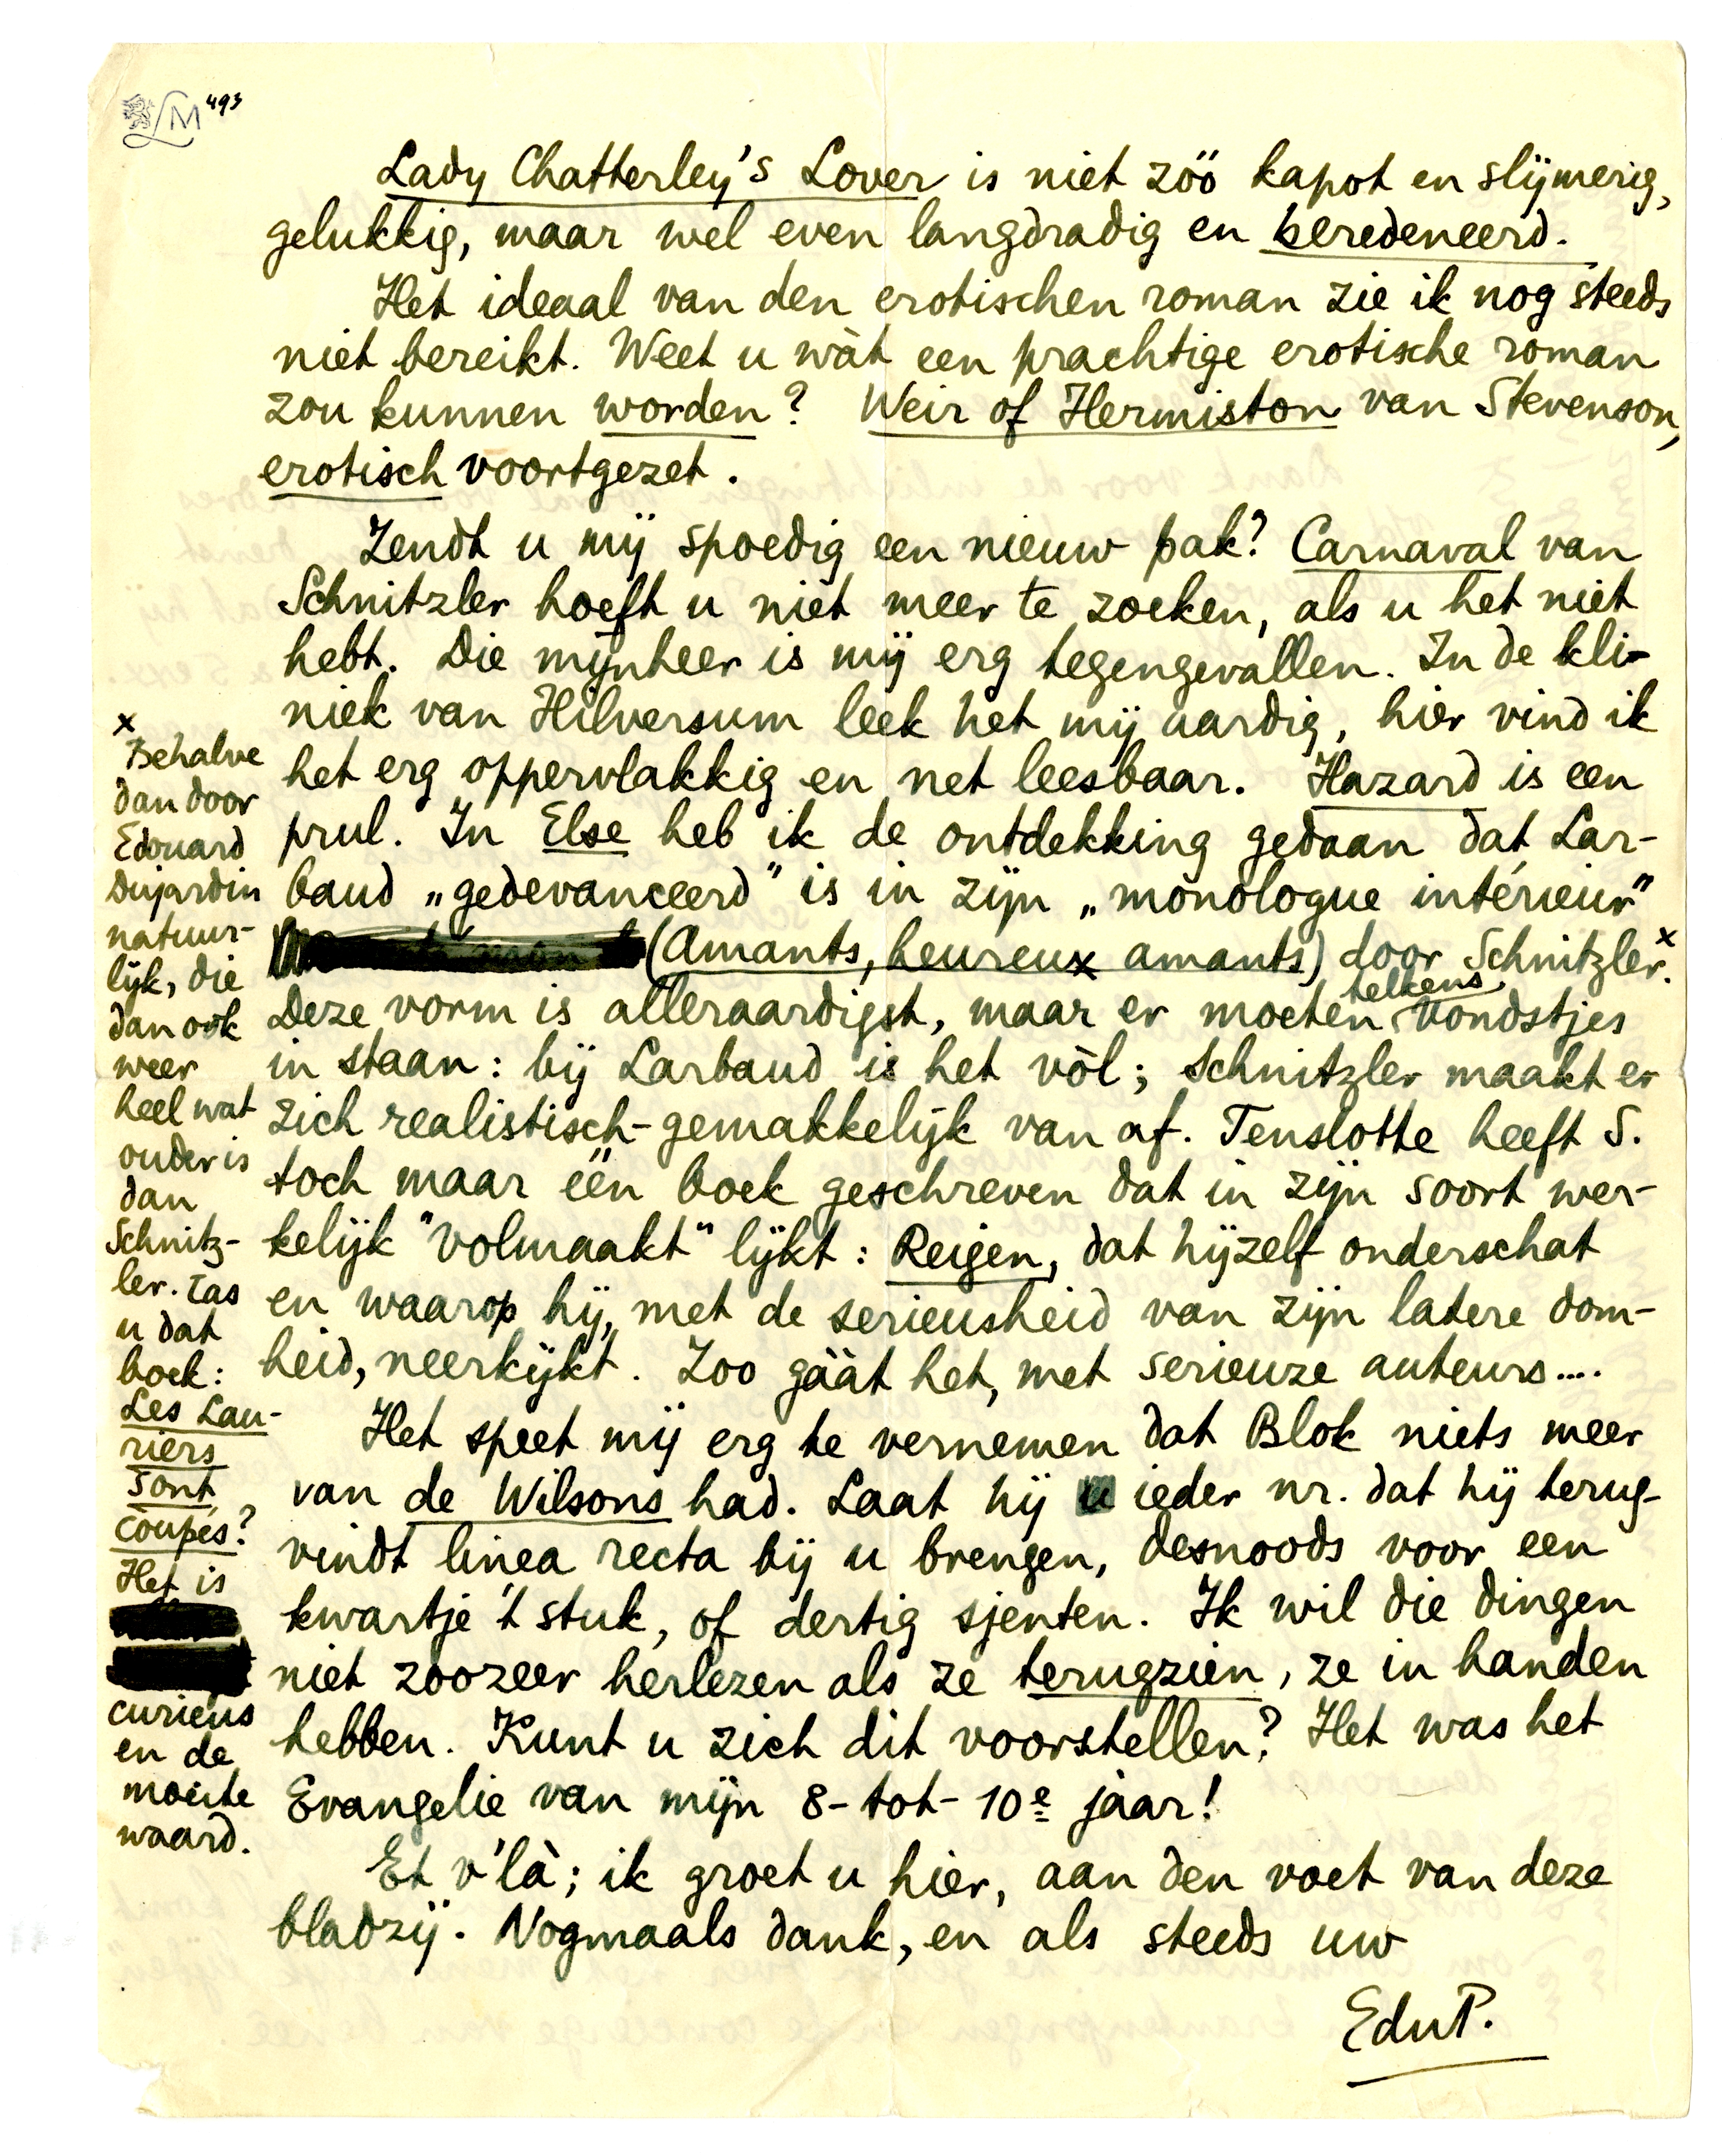 LM 493
Lady Chatterley's Lover is niet zóó kapot en slijmerig,
gelukkig, maar wel even langdradig en beredeneerd.
Het ideaal van den erotischen roman zie ik nog steeds
niet bereikt. Weet u wàt een prachtige erotische roman
zou kunnen worden? Weir of Hermiston van Stevenson,
erotisch voortgezet.
Zendt u mij spoedig een nieuw pak? Carnaval van
Schnitzler hoeft u niet meer te zoeken, als u het niet
hebt. Die mijnheer is mij erg tegengevallen. In de kli-
niek van Hilversum leek het mij aardig, hier vind ik
het erg oppervlakkig en net leesbaar. Hazard is een
prul. In Else heb ik de ontdekking gedaan dat Lar-
baud „gedevanceerd” is in zijn „monologue intérieur”
(Amants, heureux amants) door Schnitzler.x
Deze vorm is alleraardigst, maar er moeten telkens vondstjes
in staan: bij Larbaud is het vòl; Schnitzler maakt er
zich realistisch-gemakkelijk van af. Tenslotte heeft S.
toch maar één boek geschreven dat in zijn soort wer-
kelijk "volmaakt" lijkt: Reigen, dat hijzelf onderschat
en waarop hij, met de serieusheid van zijn latere dom-
heid, neerkijkt. Zoo gààt het, met serieuze auteurs....
Het speet mij erg te vernemen dat Blok niets meer
van de Wilsons had. Laat hij ieder nr. dat hij terug-
vindt linea recta bij u brengen, desnoods voor een
kwartje 't stuk, of dertig sjenten. Ik wil die dingen
niet zoozeer herlezen als ze terugzien, ze in handen
hebben. Kunt u zich dit voorstellen? Het was het
Evangelie van mijn 8-tot-10e jaar!
Et v'là; ik groet u hier, aan den voet van deze
bladzij. Nogmaals dank, en als steeds uw
EduP.
x
Behalve
dan door
Edouard
Dujardin
natuur-
lijk, die
dan ook
weer
heel wat
ouder is
dan
Schnitz-
ler. Las
u dat
boek:
Les Lau-
riers
sont
coupés?
Het is
curieus
en de
moeite
waard.